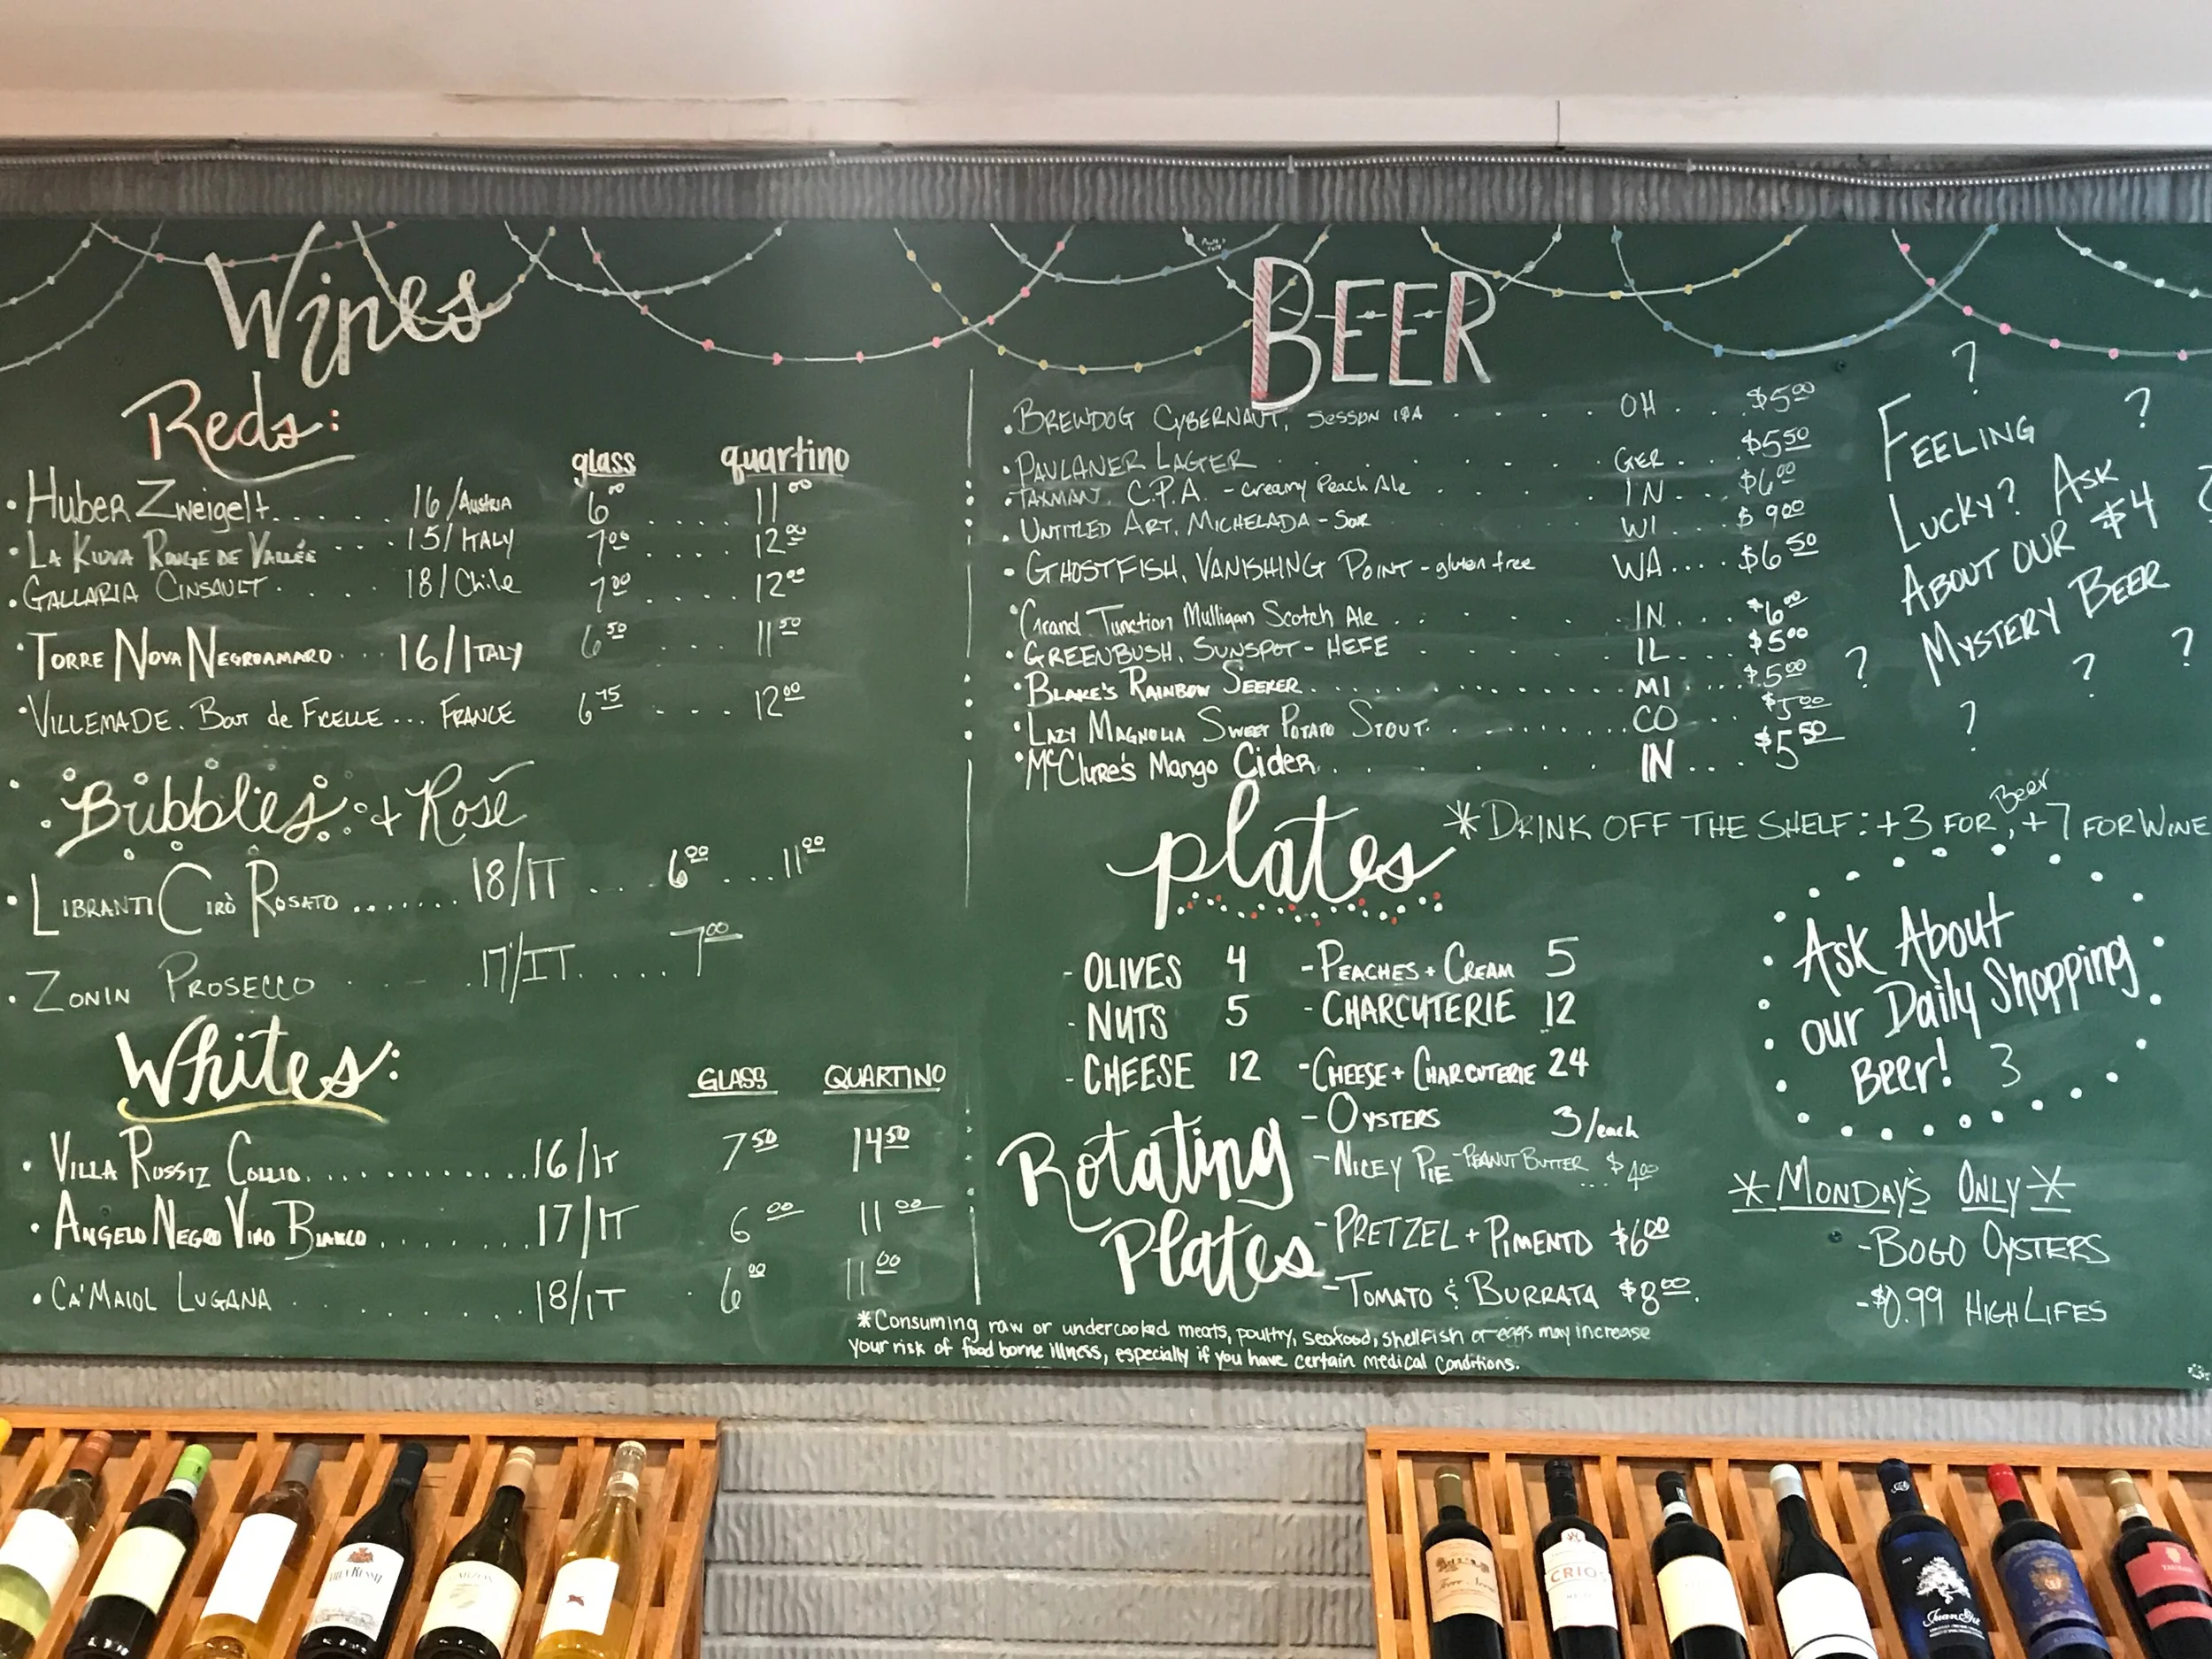 Wines
Reds:
glass quartino
• Huber Zweigelt...... 16/Austria 6⁰⁰ .... 11⁰⁰
• La Kiuva Rouge de Vallée ... 15/Italy 7⁰⁰ .... 12⁰⁰
• Gallaria Cinsault..... 18/Chile 7⁰⁰ .... 12⁰⁰
• Torre Nova Negroamaro... 16/Italy 6⁵⁰ ... 11⁵⁰
• Villemade. Bout de Ficelle ... France 6⁷⁵ ... 12⁰⁰
Bubbles + Rosé
• Libranti Cirò Rosato ....... 18/IT ... 6⁰⁰ ... 11⁰⁰
• Zonin Prosecco .... 17/IT..... 7⁰⁰
Whites:
GLASS QUARTINO
• Villa Russiz Collio............ 16/IT 7⁵⁰ 14⁵⁰
• Angelo Negro Vino Bianco........ 17/IT 6⁰⁰ 11⁰⁰
• Ca'Maiol Lugana ........ 18/IT . 6⁰⁰ 11⁰⁰
BEER
• Brewdog Cybernaut, Session IPA .... OH ... $5⁰⁰
• Paulaner Lager ....... GER... $5⁵⁰
• Taxman. C.P.A. - Creamy Peach Ale .... IN ... $6⁰⁰
• Untitled Art, Michelada - Sour WI ... $9⁰⁰
• Ghostfish, Vanishing Point - gluten free WA .... $6⁵⁰
• Grand Junction Mulligan Scotch Ale ..... IN ... $6⁰⁰
• Greenbush, Sunspot - Hefe ..... IL ... $5⁰⁰
• Blake's Rainbow Seeker.............. MI .... $5⁰⁰
• Lazy Magnolia Sweet Potato Stout.......... CO ... $5⁰⁰
• McClure's Mango Cider....... IN ... $5⁵⁰
?
?
Feeling
Lucky? Ask
?
About our $4
Mystery Beer
?
?
?
?
Beer
* Drink off the shelf: +3 for, +7 for wine
plates
- OLIVES 4
- NUTS 5
- CHEESE 12
- Peaches + Cream 5
- Charcuterie 12
- Cheese + Charcuterie 24
Rotating
Plates
- Oysters 3/each
- Nicey Pie - Peanut Butter ... $4⁰⁰
- Pretzel + Pimento $6⁰⁰
- Tomato & Burrata $8⁰⁰.
Ask About
our Daily Shopping
Beer! 3
* Monday's Only *
- BOGO Oysters
- $0.99 High Lifes
*Consuming raw or undercooked meats, poultry, seafood, shellfish or eggs may increase
your risk of food borne illness, especially if you have certain medical conditions.
CRIOS